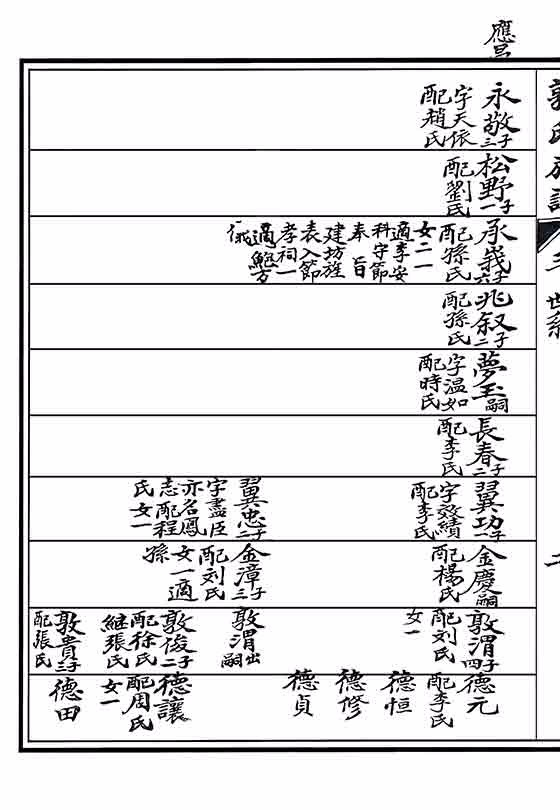 應
永敬三子
字天依
配趙氏
松野一子
配劉氏
承義六子
配孫氏
女二一
適李安
科守節
奉旨
建坊旌
表入節
孝祠一
適鮑方
俄
兆叙二子
配孫氏
夢玉嗣
字温如
配時氏
長春二子
配李氏
翼功一子
字效績
配李氏
翼忠二子
字盡臣
亦名鳳
志配程
氏女一
金慶嗣
配楊氏
金漳三子
配刘氏
女一適
孫
敦渭四子
配刘氏
女一
敦渭出嗣
敦俊二子
配徐氏
継張氏
敦貴三子
配張氏
德元
配李氏
德恒
德修
德貞
德讓
配周氏
女一
德田